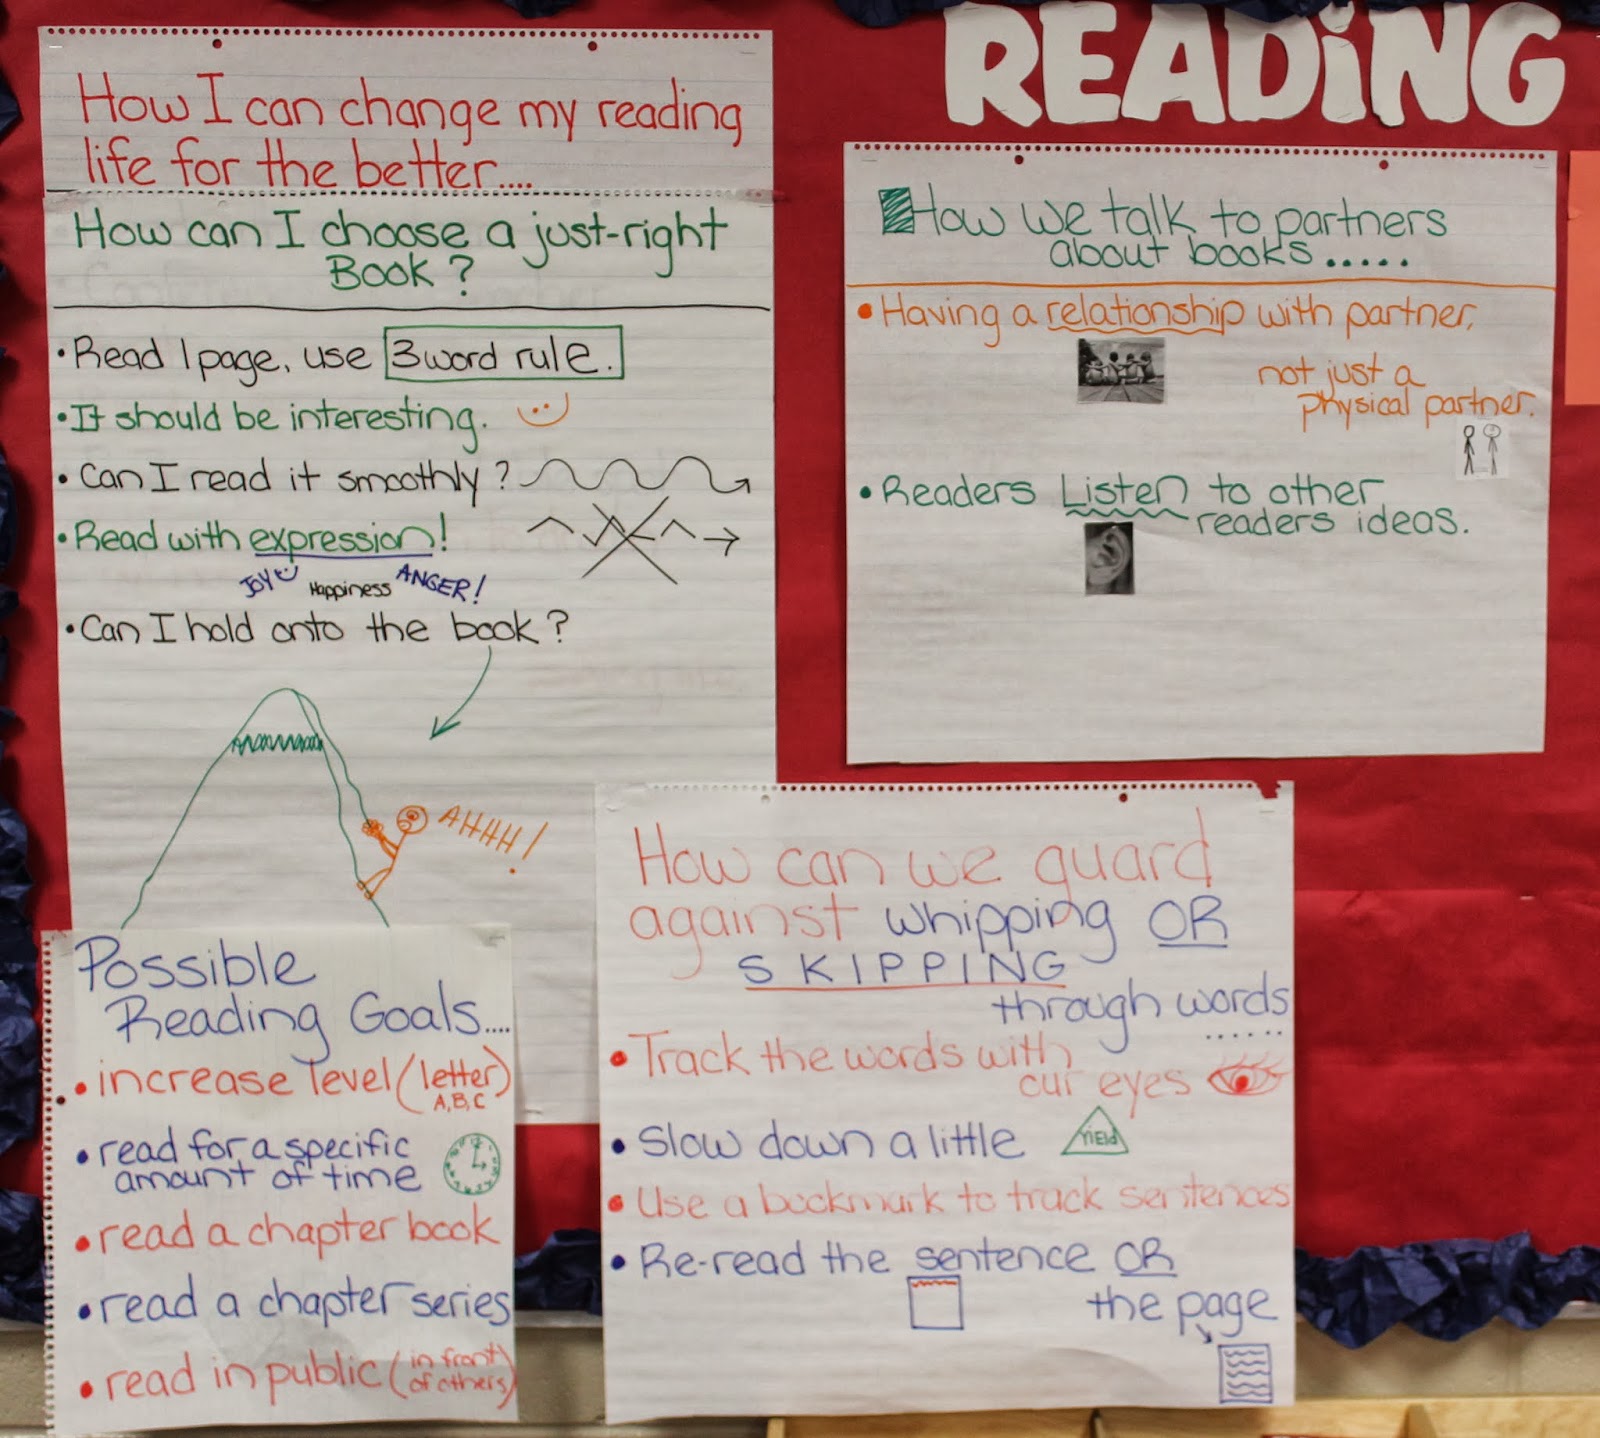 READiNG
How I can change my reading
life for the better....
How can I choose a just-right
Book?
• Read 1 page, use 3 word rule.
• It should be interesting.
• Can I read it smoothly?
• Read with expression!
JOY Happiness ANGER!
• Can I hold onto the book?
AHHH!
Possible
Reading Goals....
• increase level (letter)
A, B, C
• read for a specific
amount of time
• read a chapter book
• read a chapter series
• read in public (in front
of others)
How we talk to partners
about books.....
• Having a relationship with partner,
not just a
physical partner.
• Readers Listen to other
readers ideas.
How can we guard
against whipping OR
SKIPPING
through words
......
• Track the words with
our eyes
• Slow down a little YiELd
• Use a bookmark to track sentences
• Re-read the sentence OR
the page